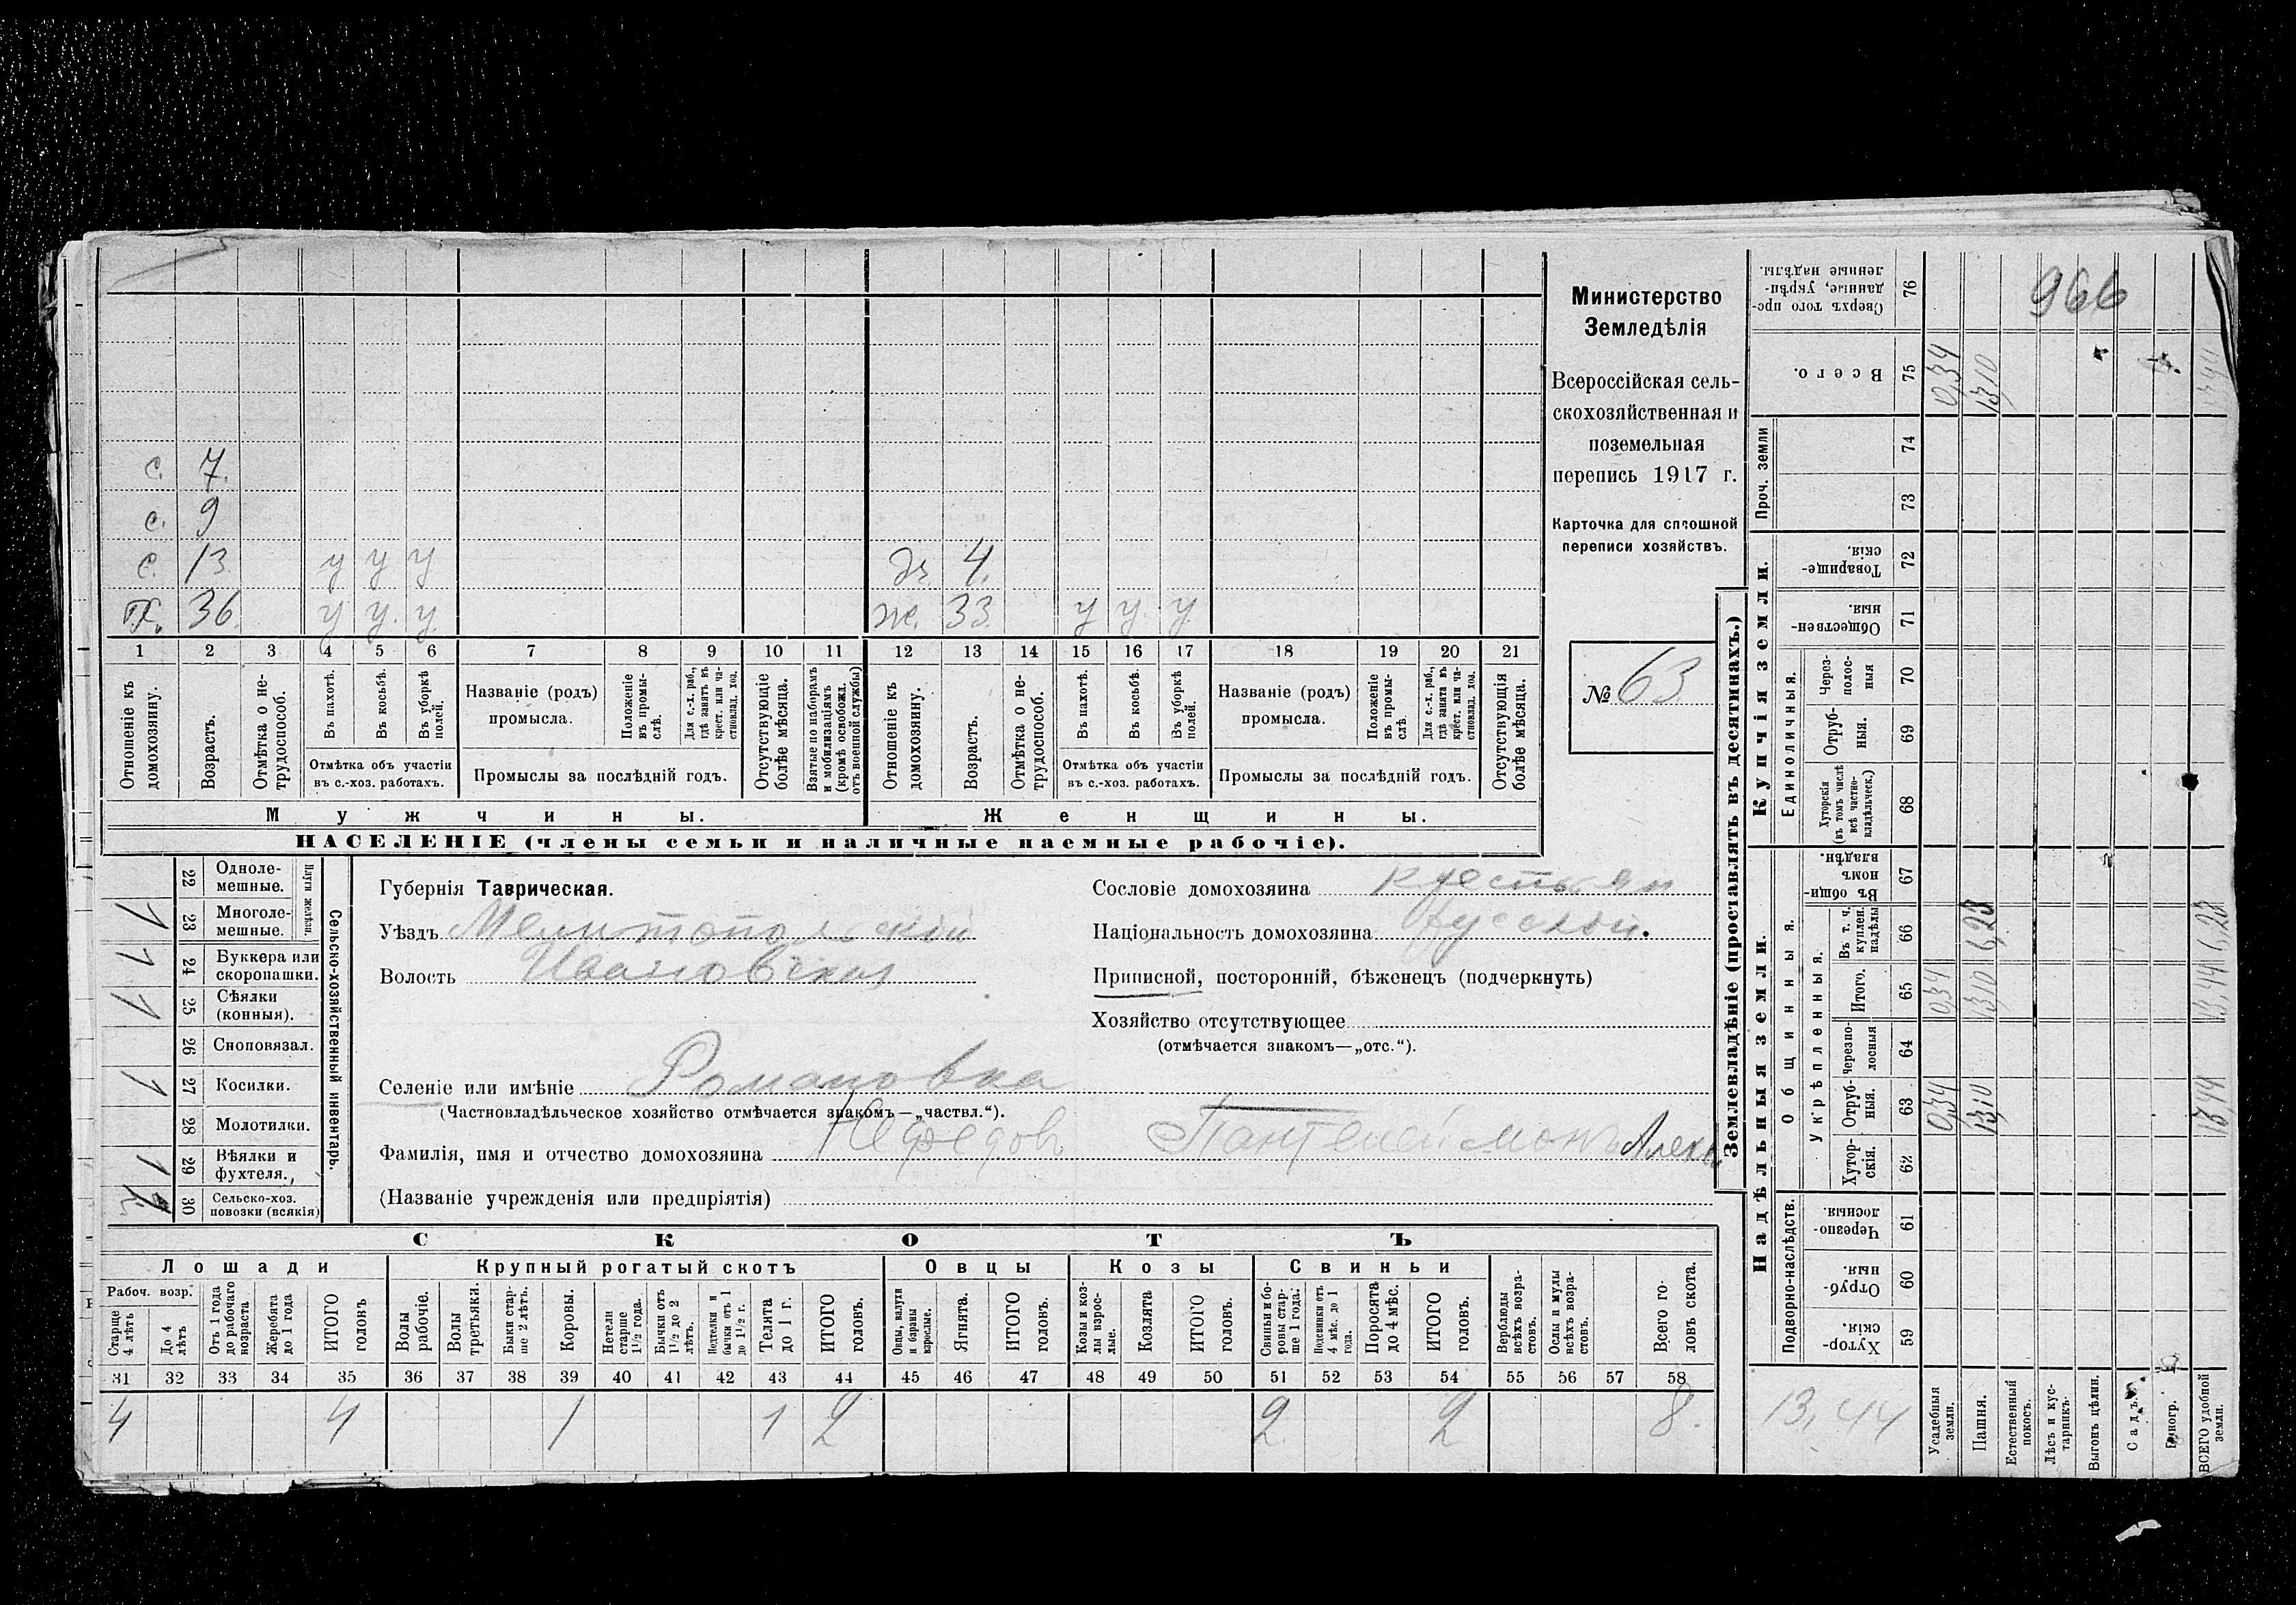 с. 7.
с. 9
с. 13 у у у др. 4.
Х. 36. у у. у. ж. 33. у у. у.
1 2 3 4 5 6 7 8 9 10 11 12 13 14 15 16 17 18 19 20 21
Отношеніе къ домохозяину.
Возрастъ.
Отмѣтка о не-трудоспособ.
Въ пахотѣ.
Въ косьбѣ.
Въ уборкѣ полей.
Отмѣтка объ участіи
въ с.-хоз. работахъ.
Названіе (родъ)
промысла.
Положеніе въ промы-слѣ.
Для с.-х. раб., гдѣ занятъ въ крест. или ча-стновлад. хоз.
Промыслы за послѣдній годъ.
Отсутствующіе болѣе мѣсяца.
Взятые по наборамъ и мобилизаціямъ (кромѣ освобожд. отъ военной службы)
Отношеніе къ домохозяину.
Возрастъ.
Отмѣтка о не-трудоспособ.
Въ пахотѣ.
Въ косьбѣ.
Въ уборкѣ полей.
Отмѣтка объ участіи
въ с.-хоз. работахъ.
Названіе (родъ)
промысла.
Положеніе въ промы-слѣ.
Для с.-х. раб., гдѣ занята въ крест. или ча-стновлад. хоз.
Промыслы за послѣдній годъ.
Отсутствующія болѣе мѣсяца.
Мужчины. Женщины.
НАСЕЛЕНІЕ (члены семьи и наличные наемные рабочіе).
Министерство
Земледѣлія
Всероссійская сель-
скохозяйственная и
поземельная
перепись 1917 г.
Карточка для сплошной
переписи хозяйствъ.
№ 63
Сельско-хозяйственный инвентарь.
Плуги желѣзн.
22 Одноле-мешные.
1 23 Многоле-мешные.
1 24 Буккера или скоропашки.
1 25 Сѣялки (конныя).
26 Сноповязал.
1 27 Косилки.
28 Молотилки.
1 29 Вѣялки и фухтеля.
30 Сельско-хоз. повозки (всякія)
Губернія Таврическая.
Уѣздъ Мелитопольскій
Волость Ивановская
Сословіе домохозяина крестьян
Національность домохозяина Русскій.
Приписной, посторонній, бѣженецъ (подчеркнуть)
Хозяйство отсутствующее
(отмѣчается знакомъ—„отс.“).
Селеніе или имѣніе Романовка
(Частновладѣльческое хозяйство отмѣчается знакомъ—„частвл.“).
Фамилія, имя и отчество домохозяина Нефедовъ Пантелеймонъ Алекс.
(Названіе учрежденія или предпріятія)
СКОТЪ
Лошади Крупный рогатый скотъ Овцы Козы Свиньи
Рабоч. возр.
Старше 4 лѣтъ
До 4 лѣтъ
Отъ 1 года до рабочаго возраста
Жеребята до 1 года
ИТОГО головъ
Волы рабочіе.
Волы третьяки.
Быки стар-ше 2 лѣтъ.
Коровы.
Нетели старше 1½ года.
Бычки отъ 1½ до 2 лѣтъ.
Нетелки и бычки отъ 1 до 1½ г.
Телята до 1 г.
ИТОГО головъ.
Овцы, валухи и бараны взрослые.
Ягнята.
ИТОГО головъ.
Козы и коз-лы взрос-лые.
Козлята
ИТОГО головъ.
Свиньи и бо-ровы стар-ше 1 года.
Подсвинки отъ 4 мѣс. до 1 года.
Поросята до 4 мѣс.
ИТОГО головъ.
Верблюды всѣхъ возра-стовъ.
Ослы и мулы всѣхъ возра-стовъ.
Всего го-ловъ скота.
31 32 33 34 35 36 37 38 39 40 41 42 43 44 45 46 47 48 49 50 51 52 53 54 55 56 57 58
4 4 1 1 2 2 2 8.
Землевладѣніе (проставлять въ десятинахъ.)
Купчія земли.
Надѣльныя земли.
Сверхъ того про-данные, укрѣп-ленные надѣлы. 76 966
Всего. 75 0,34 13,10 13,44
Проч. земли
74
73
Товарище-скія. 72
Обществен-ныя 71
Единоличныя.
Через-полос-ныя 70
Отруб-ныя. 69
Хуторскія (въ томъ числѣ всѣ частно-владѣльческ.) 68
Общинныя.
Въ общин-номъ владѣн. 67
Укрѣпленныя.
Въ т. ч. куплен. надѣлы 66 1,23 1,23
Итого. 65 0,34 13,10 13,44
Черезпо-лосныя 64
Отруб-ныя. 63 0,34 13,10 13,44
Хутор-скія. 62
Подворно-наслѣдств.
Черезпо-лосныя. 61
Отруб-ныя. 60
Хутор-скія. 59
13,44
Усадебныя земли.
Пашня.
Естественный покосъ.
Лѣсъ и кус-тарникъ.
Выгонъ цѣлин.
Садъ.
Виногр.
ВСЕГО удобной земли.